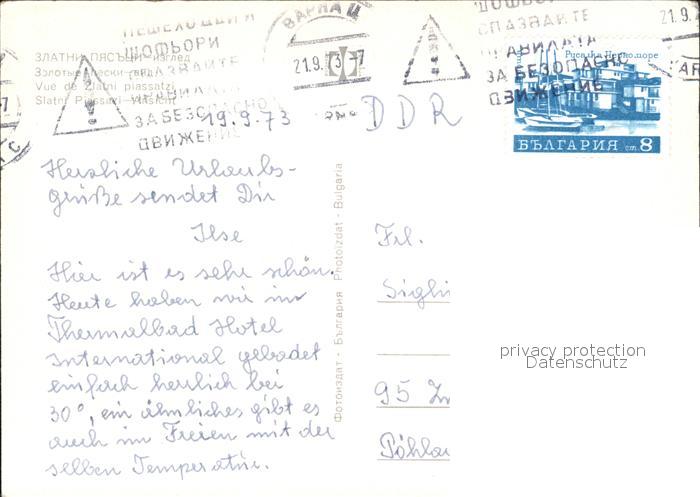 ПЕШЕХОДЦИ И
ШОФЬОРИ
СПАЗВАЙТЕ
ПРАВИЛАТА
ЗА БЕЗОПАСНО
ДВИЖЕНИЕ
ВАРНА Ц
21.9.73-7
ШОФЬОРИ
СПАЗВАЙТЕ
ПРАВИЛАТА
ЗА БЕЗОПАСНО
ДВИЖЕНИЕ
21.9
ЗЛАТНИ ПЯСЪЦИ - Изглед
Золотые пески - вид
Vue de Zlatni piassatzi
Slatni Piassazi - Ansicht
Русалка Черно море
БЪЛГАРИЯ ст. 8
19.9.73
DDR
Herzliche Urlaubs-
grüße sendet Dir
Ilse
Hier ist es sehr schön.
Heute haben wir im
Thermalbad Hotel
International gebadet
einfach herrlich bei
30°, ein ähnliches gibt es
auch im Freien mit der
selben Temperatur.
Фотоиздат - България Photoizdat - Bulgaria
Frl.
Sigli
95 Zw
Pöhlau
privacy protection
Datenschutz